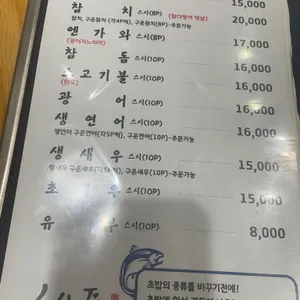 15,000
참 치 스시(8P) (참다랑어 뱃살) 20,000
참치, 구운참치 (각4P씩), 구운참치(8P)-주문가능
엔 가 와 스시(8P) 17,000
(광어지느러미)
참 돔 스시(10P) 16,000
소 고 기 불 스시(10P) 16,000
(한우)
광 어 스시(10P) 16,000
생 연 어 스시(10P) 16,000
생연어 구운연어(각5P씩), 구운연어(10P)-주문가능
생 새 우 스시(10P) 15,000
생새우 구운새우(각5P씩), 구운새우(10P)-주문가능
초 스시(10P) 15,000
유 스시(10P) 8,000
초밥의 종류를 바꾸기전에!